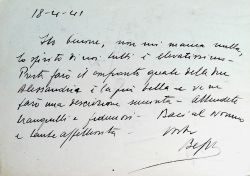 18-4-41
Sto benone, non mi manca nulla,
lo spirito di noi tutti è elevatissimo -
Presto farò il confronto quale delle due
Alessandria è la più bella e ve ne
farò una descrizione - Attendete
tranquilli e fiduciosi - Baci al nonno
e tanta affettuosità - Vostro
Beppe